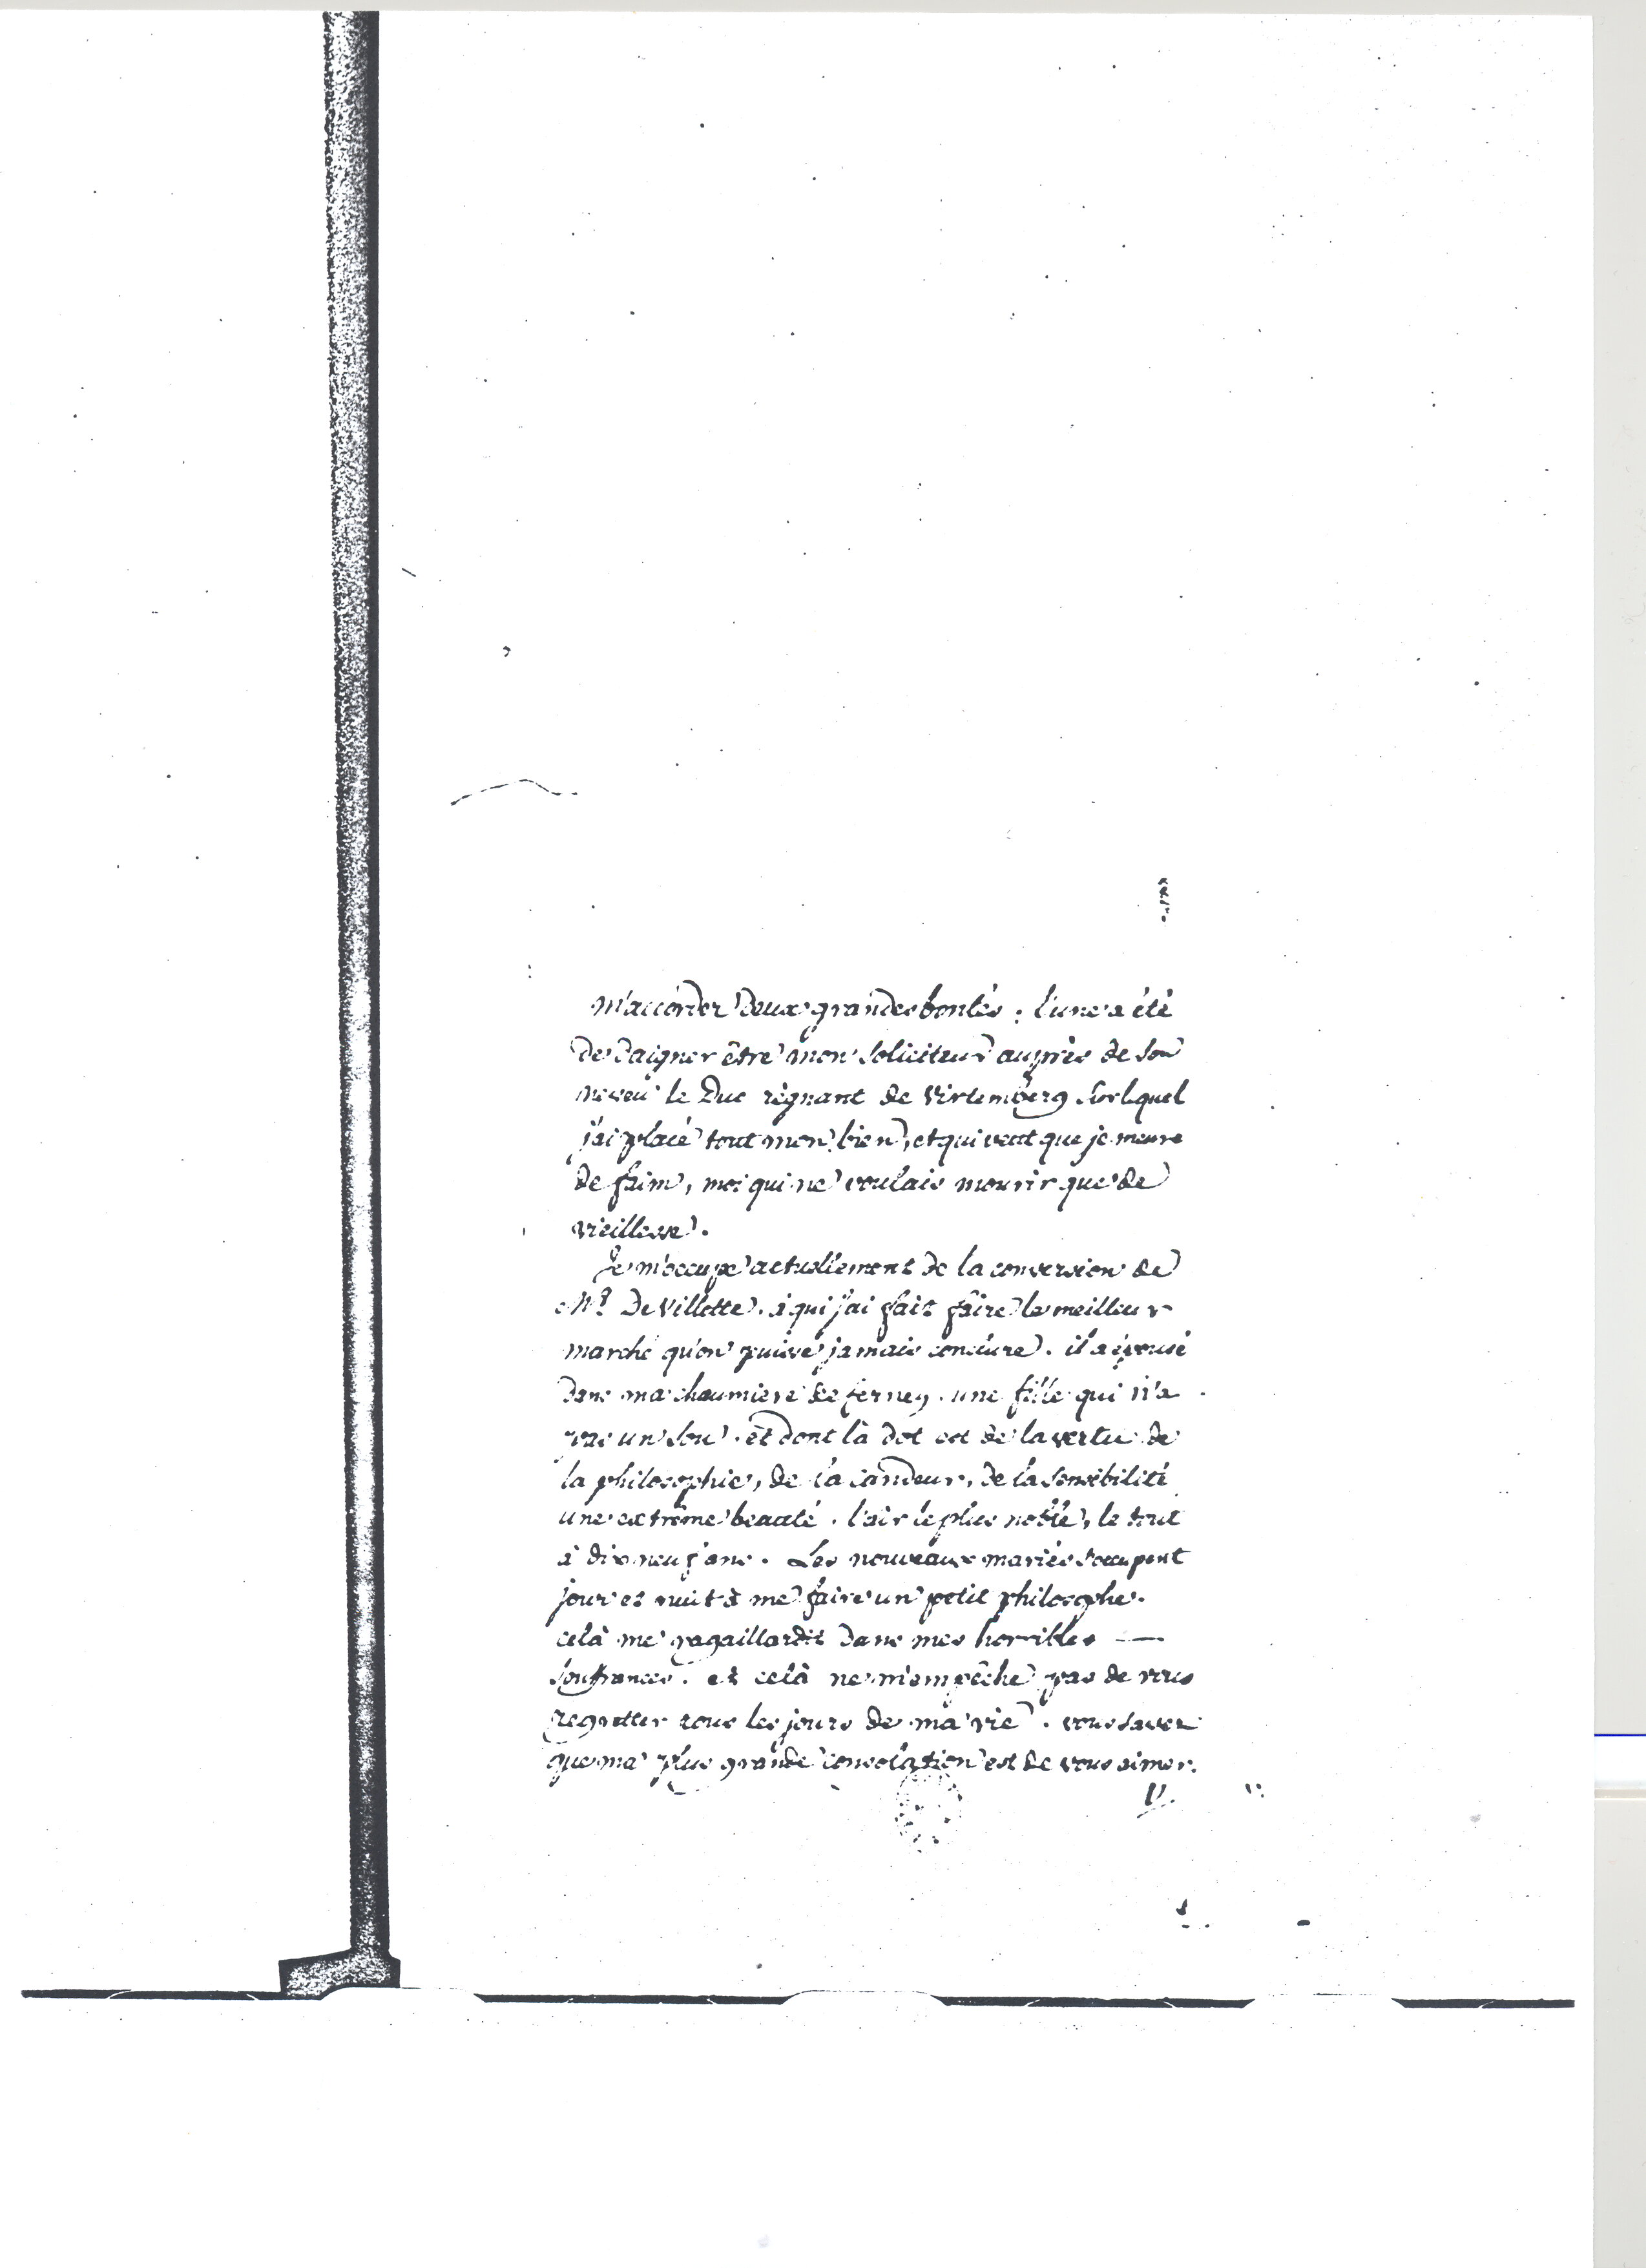 m'accorder deux grandes bontés; l'une a été
de daigner être mon soliciteur auprès de son
neveu le Duc règnant de Virtemberg sur lequel
j'ai placé tout mon bien, et qui veut que je meure
de faim, moi qui ne voulais mourir que de
vieillesse.
Je m'occupe actuellement de la conversion de
Mr. De Villette. à qui j'ai fait faire le meilleur
marché qu'on puisse jamais conclure. il a épousé
dans ma chaumiere de ferney. une fille qui n'a
pas un sou. et dont là dot est de la vertu de
la philosophie, de la candeur, de la sensibilité
une extrême beauté. l'air le plus noble, le tout
à dix neuf ans. Les nouveaux mariés s'occupent
jour et nuit à me faire un petit philosophe.
celà me ragaillardit dans mes horribles —
soufrances. et celà ne m'empêche pas de vous
regretter tous les jours de ma vie. vous savez
que ma plus grande consolation est de vous aimer.
V.